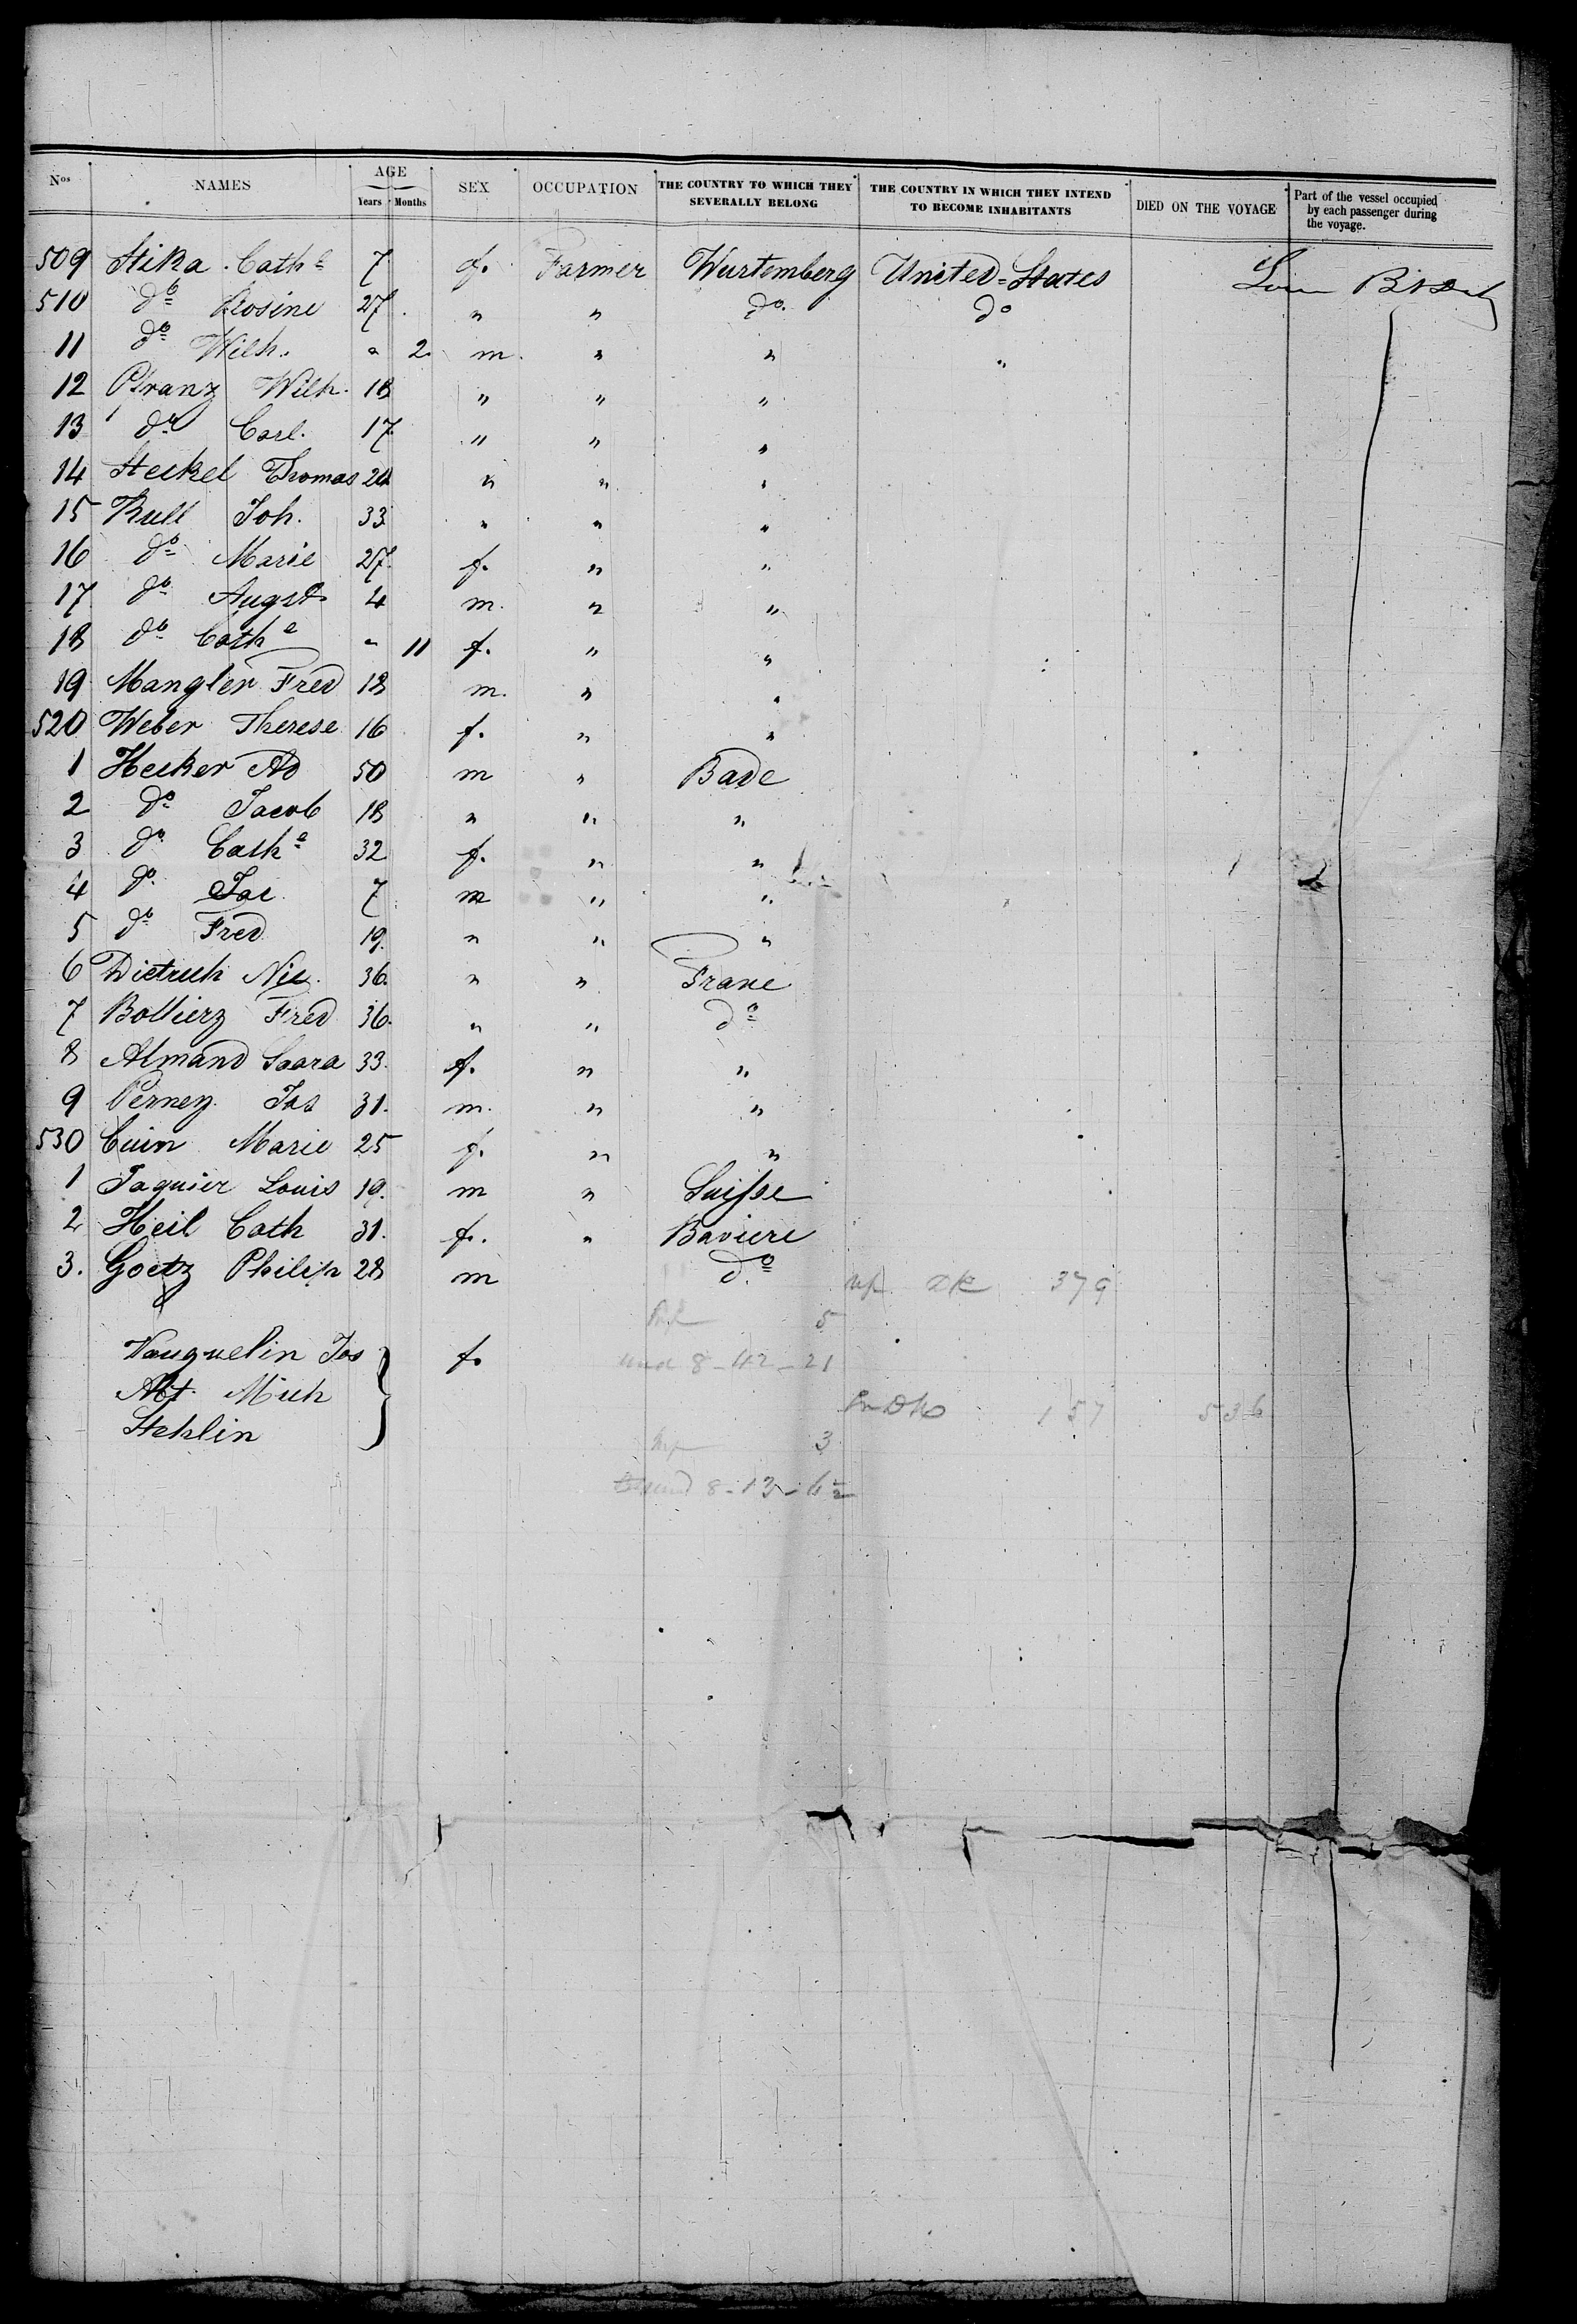 Nos NAMES AGE Years Months SEX OCCUPATION THE COUNTRY TO WHICH THEY SEVERALLY BELONG THE COUNTRY IN WHICH THEY INTEND TO BECOME INHABITANTS DIED ON THE VOYAGE Part of the vessel occupied by each passenger during the voyage.
509 Stika Cathe 7 f. Farmer Wurtemberg United=States
510 do Rosine 27 " " do do
11 do Wilh. " 2. m. " " "
12 Pfranz Wilh. 18 " " "
13 do Carl. 17 " " "
14 Steckel Thomas 24 " " "
15 Kull Joh. 33 " " "
16 do Marie 27. f. " "
17 do Augst 4 m. " "
18 do Cathe " 11 f. " "
19 Mangler Fred 18 m. " "
520 Weber Therese 16 f. " "
1 Hecker Ad 50 m " Bade
2 do Jacob 18 " " "
3 do Cathe 32 f. " "
4 do Jac 7 m " "
5 do Fred 19. " " "
6 Dietrich Nic. 36. " " Franc
7 Bollierz Fred 36. " " do
8 Almand Saara 33. f. " "
9 Perney Jos 31. m. " "
530 Cuin Marie 25 f. " "
1 Jaquier Louis 19. m " Suisse
2 Heil Cath 31. f. " Baviere
3. Goetz Philip 28 m do 379
5
Vauquelin Jos f. 8-42-21
Abt Mich 157 536
Stehlin 3
8-13-6